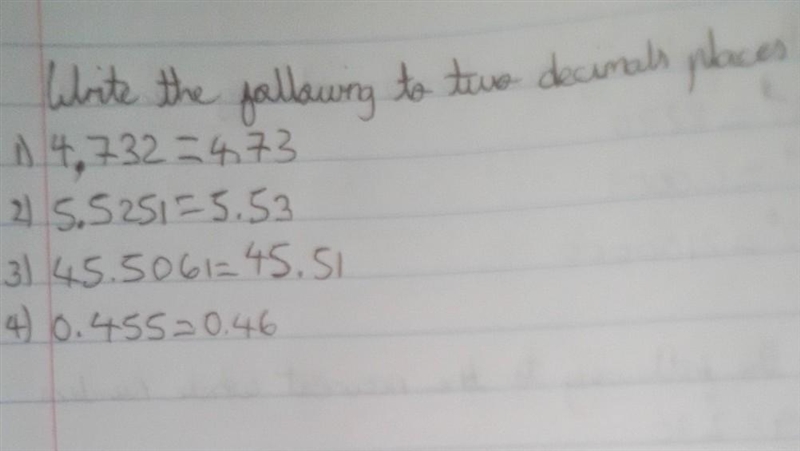 Write the following to two decimals places
1) 4,732 = 4.73
2) 5.5251 = 5.53
3) 45.5061 = 45.51
4) 0.455 = 0.46